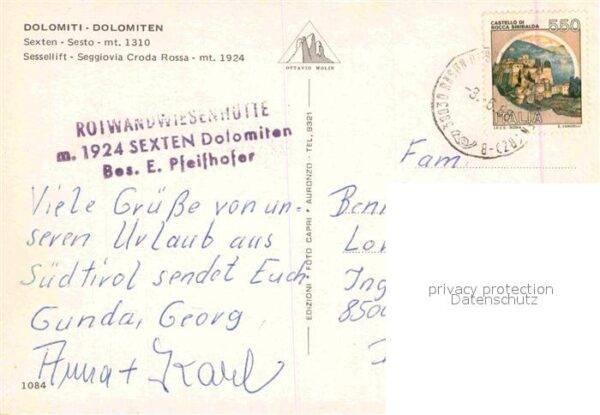 DOLOMITI - DOLOMITEN
Sexten - Sesto - mt. 1310
Sessellift - Seggiovia Croda Rossa - mt. 1924
OTTAVIO MOLIN
CASTELLO DI
ROCCA SINIBALDA
550
ITALIA
ROTWANDWIESENHÜTTE
m. 1924 SEXTEN Dolomiten
Bes. E. Pfeifhofer
Viele Grüße von un-
seren Urlaub aus
Südtirol sendet Euch
Gunda, Georg
Anna + Karl
1084
EDIZIONI FOTO CAPRI - AURONZO - TEL. 9321
Fam.
Ben
Lo
Ing
850
privacy protection
Datenschutz